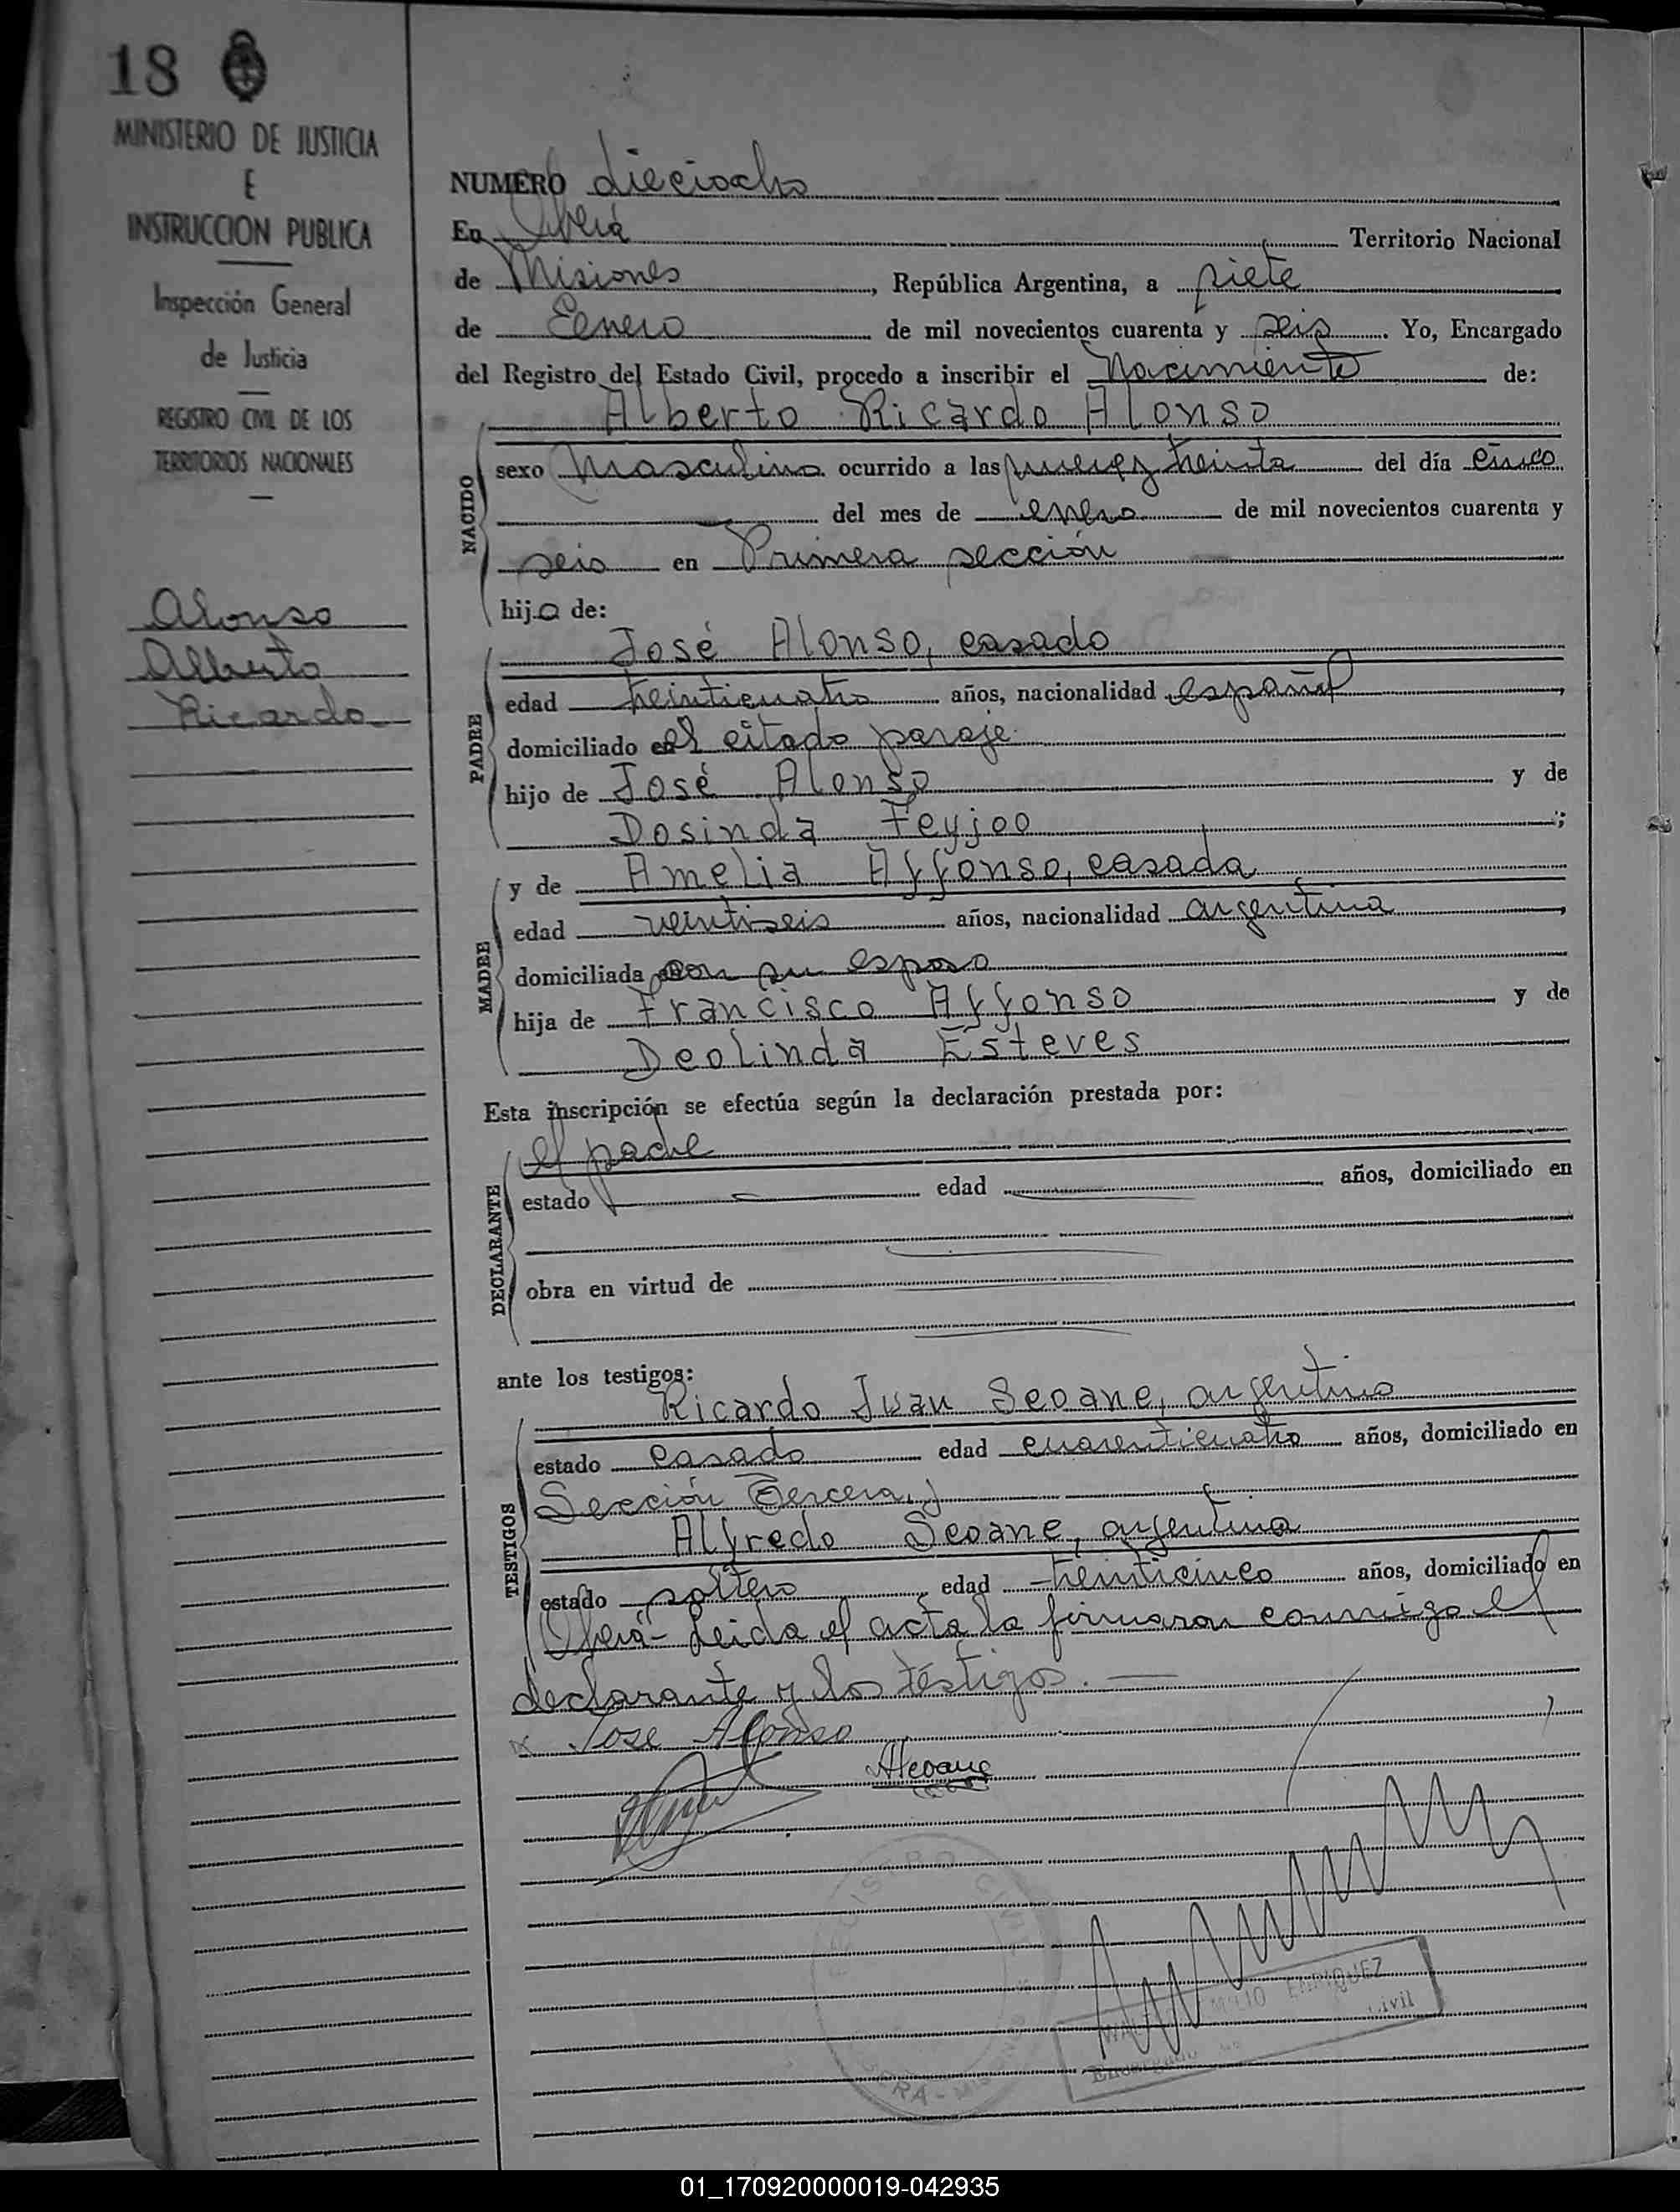 18
MINISTERIO DE JUSTICIA
E
INSTRUCCION PUBLICA
Inspección General
de Justicia
REGISTRO CIVIL DE LOS
TERRITORIOS NACIONALES
Alonso
Alberto
Ricardo
NUMERO dieciocho
En Oberá Territorio Nacional
de Misiones, República Argentina, a siete
de Eenero de mil novecientos cuarenta y seis. Yo, Encargado
del Registro del Estado Civil, procedo a inscribir el Nacimiento de:
Alberto Ricardo Alonso
NACIDO
sexo Masculino ocurrido a las nueve y treinta del día cinco
del mes de enero de mil novecientos cuarenta y
seis en Primera sección
hijo de:
José Alonso, casado
PADRE
edad treinticuatro años, nacionalidad español,
domiciliado en el citado paraje
hijo de José Alonso y de
Dosinda Feyjoo;
y de Amelia Affonso, casada
MADRE
edad veintiseis años, nacionalidad argentina,
domiciliada con su esposo
hija de Francisco Affonso y de
Deolinda Esteves
Esta inscripción se efectúa según la declaración prestada por:
el padre
DECLARANTE
estado edad años, domiciliado en
obra en virtud de
ante los testigos:
Ricardo Juan Seoane, argentino
TESTIGOS
estado casado edad cuarenticuatro años, domiciliado en
Sección Tercera y
Alfredo Seoane, argentino
estado soltero edad treinticinco años, domiciliado en
Oberá- Leida el acta la firmaron conmigo el
declarante y los testigos. —
x Jose Alonso
ASeoane
REGISTRO CIVIL
EMILIO ENRIQUEZ
Encargado Civil
01_170920000019-042935